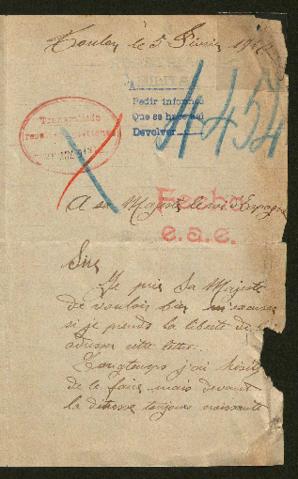 Toulon le 5 Février
Transmitido
A
Pedir informes
Que se haga así
Devolver
A sa Majesté le roi d'Espagne
Fecho
e.a.e.
Sire
Je prie Sa Majesté
de vouloir bien m'excuser
si je prends la liberté de
adresser cette lettre.
Longtemps j'ai hésité
de le faire mais devant
la détresse toujours croissante